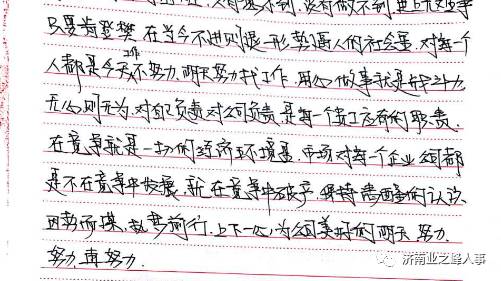 只要肯登攀，在当今不进则退，形势逼人的社会里，对每一个
人都是今天不努力工作，明天努力找工作，用心做事就是战斗力，
无心则无为，对自己负责，对公司负责，是每一个员工应有的职责，
在竞争就是一切的经济环境里，市场对每一个企业公司都
是不在竞争中发展，就在竞争中破产，保持清醒的认识，
因势而谋，趁势前行，上下一心，为公司美好的明天，努力，
努力，再努力．
济南业之峰人事